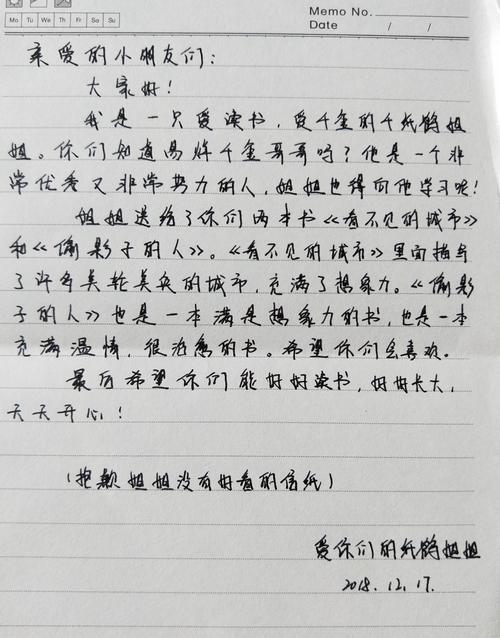 Memo No.
Mo Tu We Th Fr Sa Su
Date / /
亲爱的小朋友们：
大家好！
我是一只爱读书，爱千玺的千纸鹤姐
姐。你们知道易烊千玺哥哥吗？他是一个非
常优秀又非常努力的人，姐姐也得向他学习呢！
姐姐送给了你们两本书《看不见的城市》
和《偷影子的人》。《看不见的城市》里面描写
了许多美轮美奂的城市，充满了想象力。《偷影
子的人》也是一本满是想象力的书，也是一本
充满温情，很治愈的书。希望你们会喜欢。
最后希望你们能好好读书，好好长大，
天天开心！
（抱歉姐姐没有好看的信纸）
爱你们的纸鹤姐姐
2018.12.17.